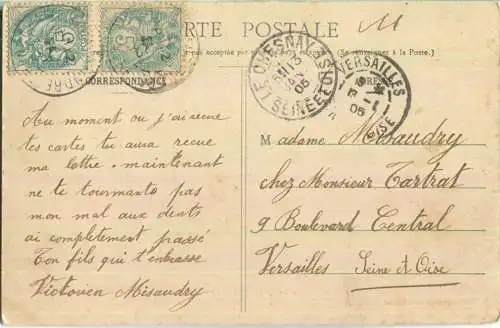 CARTE POSTALE
11
CORRESPONDANCE
LE CHESNAY
13
05
SEINE-ET-OISE
VERSAILLES
05
Au moment ou j'ai recue
tes cartes tu aura recue
ma lettre - maintenant
ne te tourmante pas
mon mal aux dents
ai completement passé
Ton fils qui t'embrasse
Victorien Misaudry
Madame Misaudry
chez Monsieur Tartrat
9 Boulevard Central
Versailles Seine et Oise